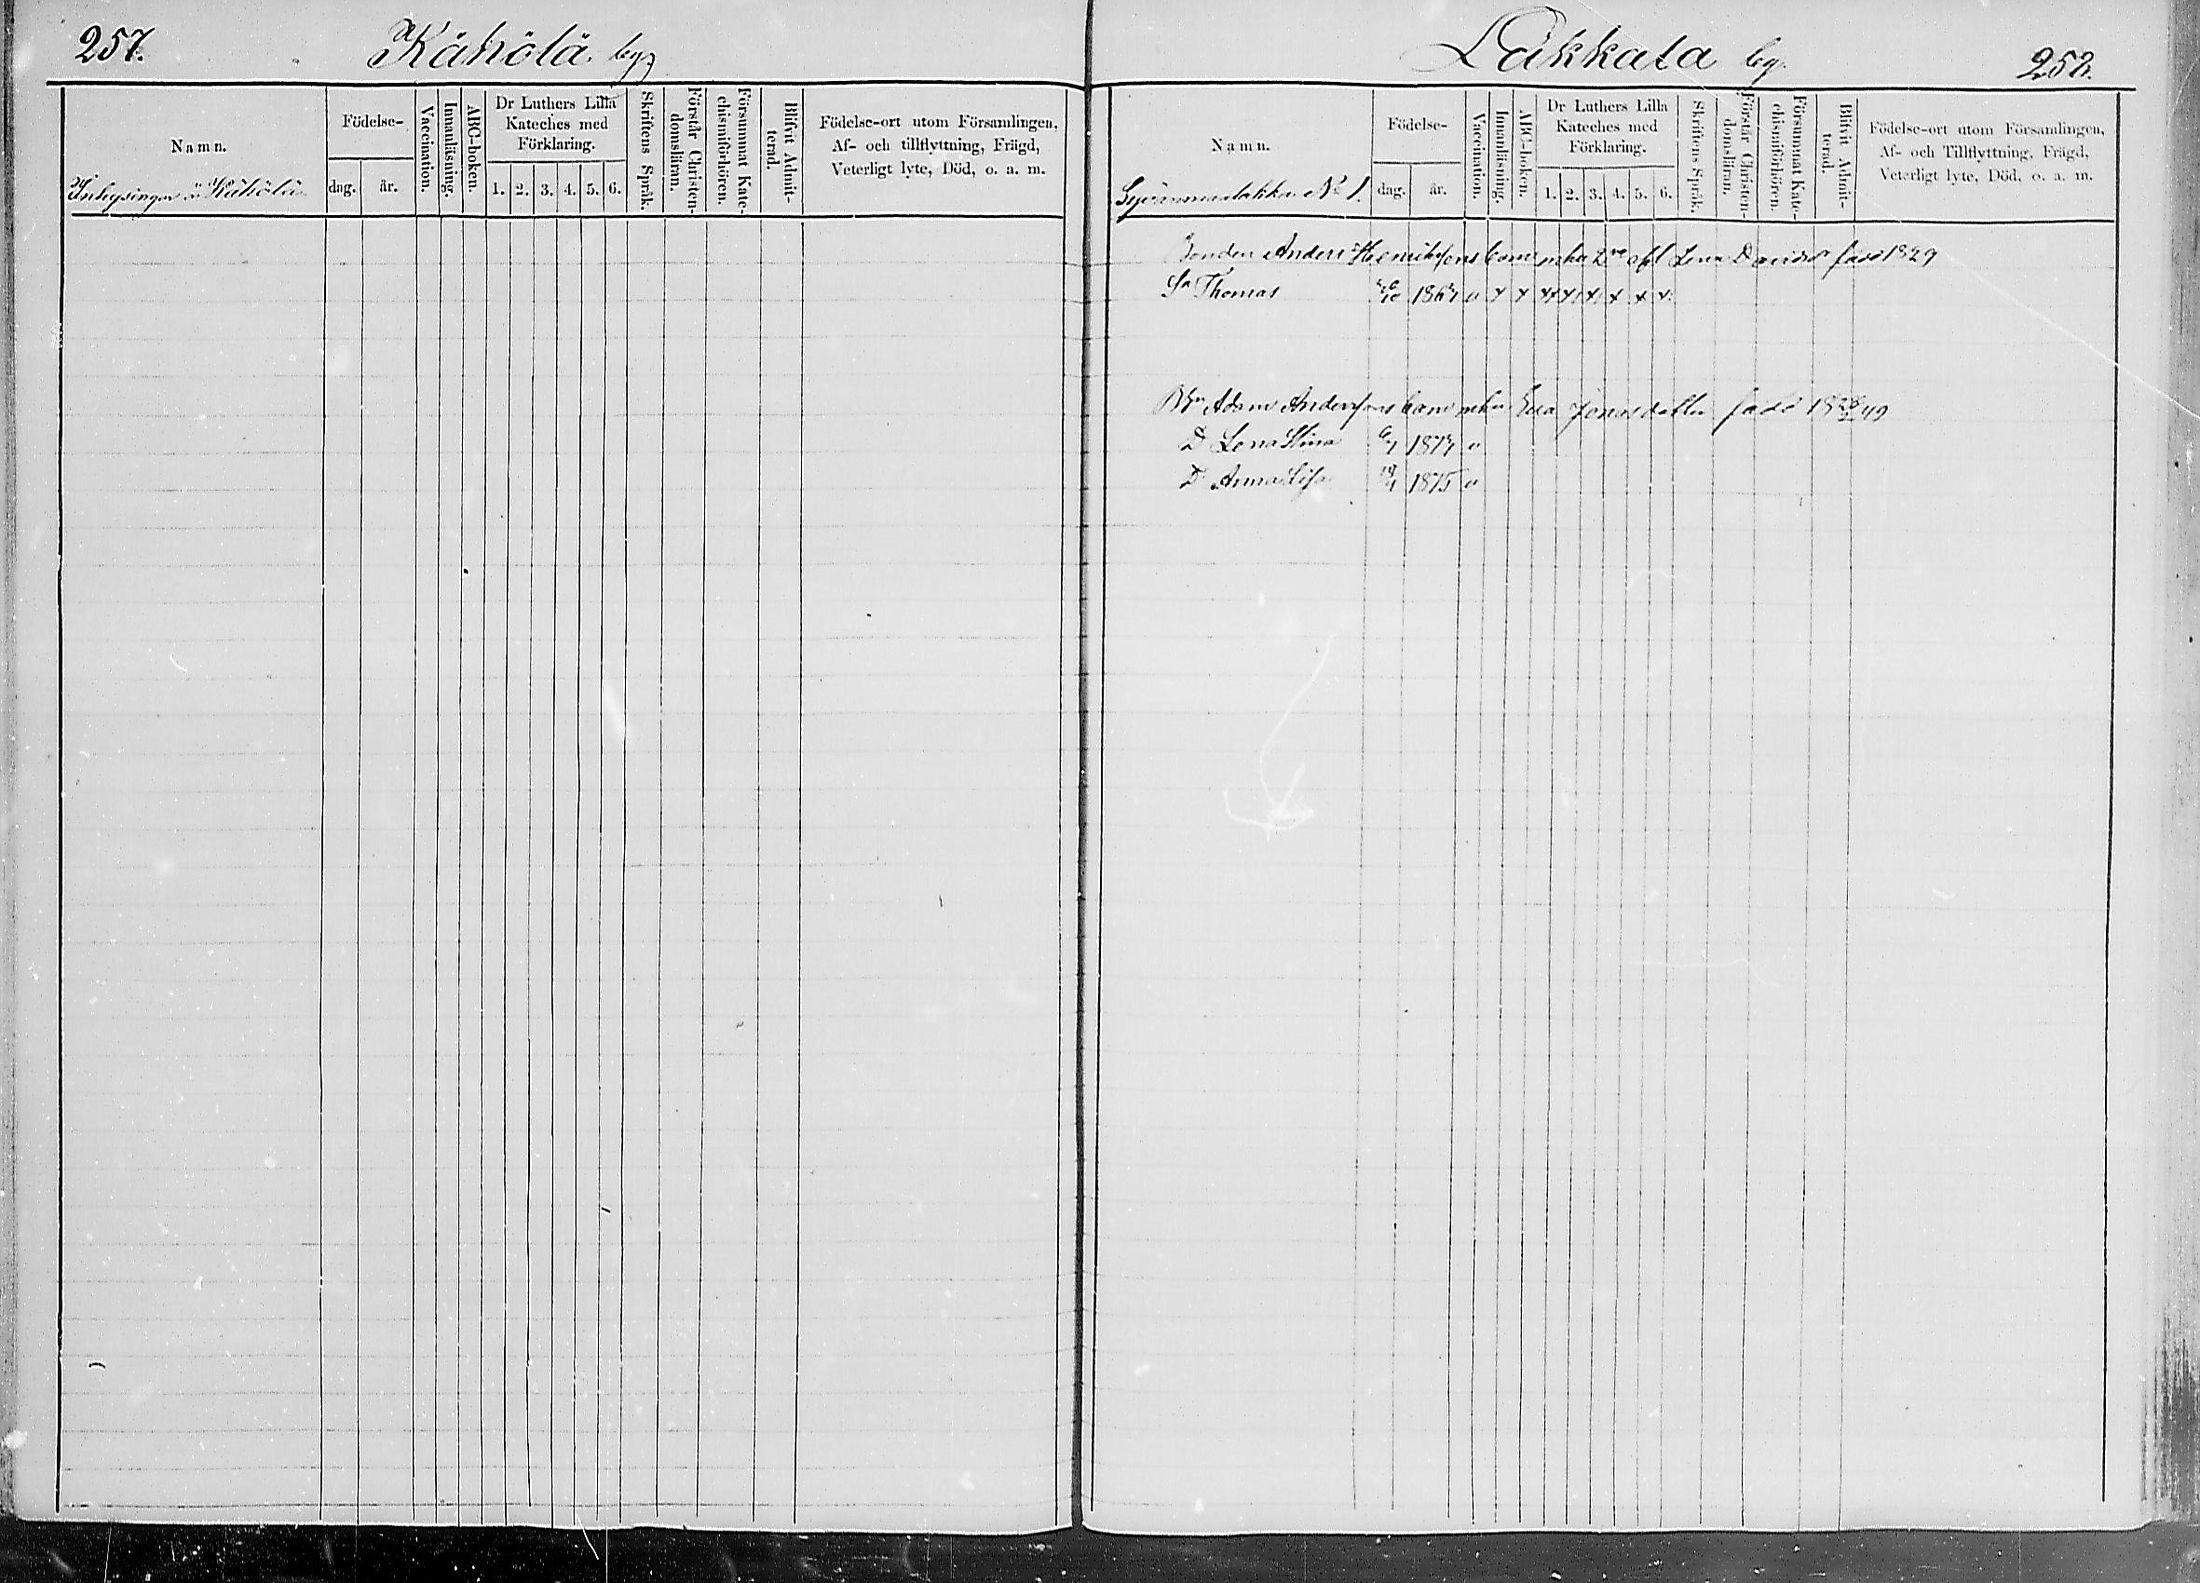 257.
Kähölä by
Namn.
Födelse-
dag.
år.
Vaccination.
Innanläsning.
ABC-boken.
Dr Luthers Lilla
Kateches med
Förklaring.
1. 2. 3. 4. 5. 6.
Skriftens Språk.
Förstår Christen-
domsläran.
Försummat Kate-
chismiförhören.
Blifvit Admit-
terad.
Födelse-ort utom Församlingen,
Af- och tillflyttning, Frägd,
Veterligt lyte, Död, o. a. m.
Inhysingar i Kähölä
Läkkala by.
258.
Namn.
Födelse-
dag.
år.
Vaccination.
Innanläsning.
ABC-boken.
Dr Luthers Lilla
Kateches med
Förklaring.
1. 2. 3. 4. 5. 6.
Skriftens Språk.
Förstår Christen-
domsläran.
Försummat Kate-
chismiförhören.
Blifvit Admit-
terad.
Födelse-ort utom Församlingen,
Af- och Tillflyttning, Frägd,
Veterligt lyte, Död, o. a. m.
No 1.
Bonden Anders Henrikssons barn Lena Davidsdr född 1829
Sn Thomas v x x x x x x x x
Adam Anderssons barn Eva Jonasdotter född
D Lena Stina 1874 v
D Anna Lisa 1875 v